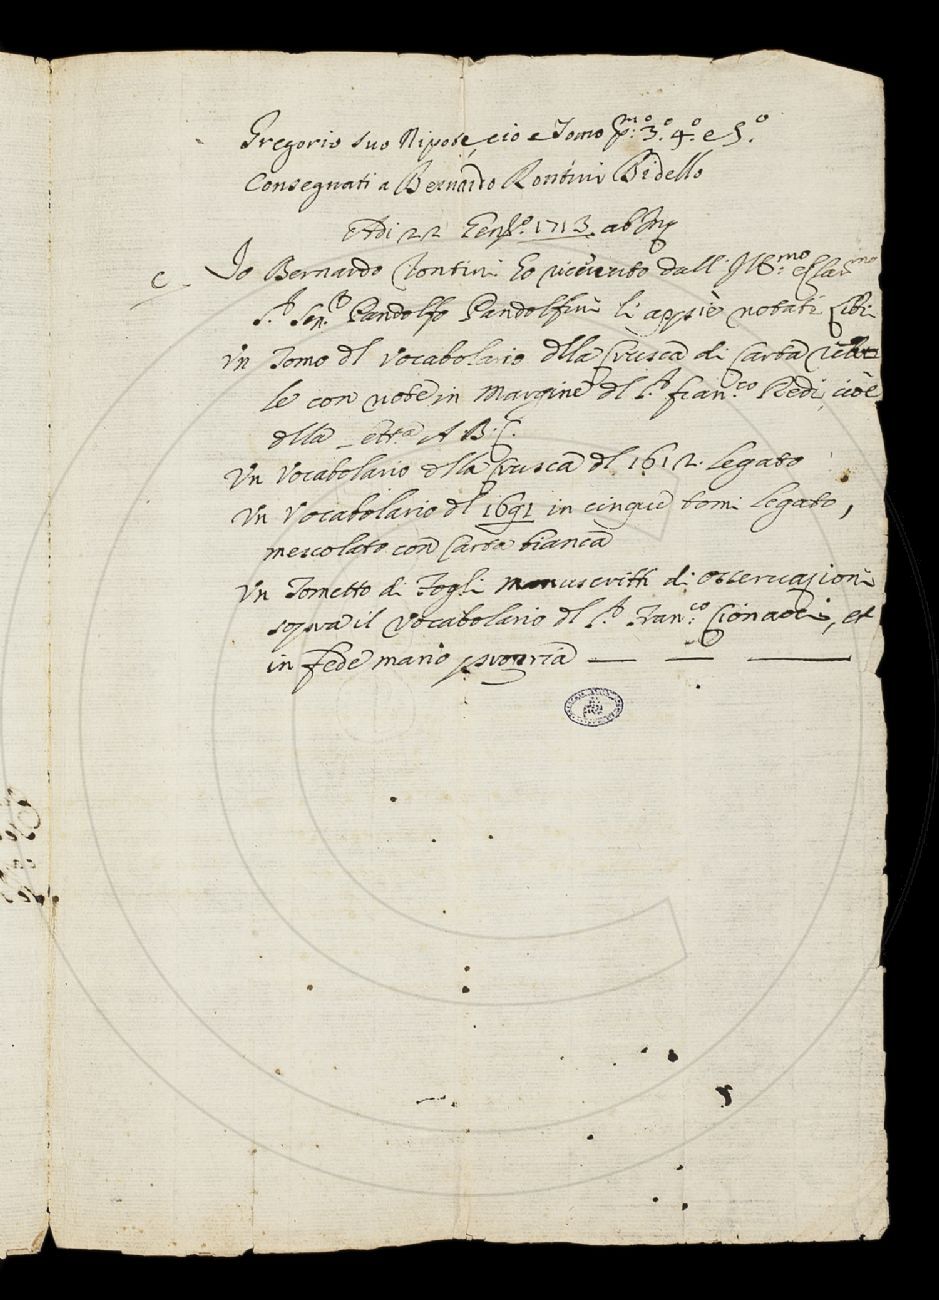 Gregorio suo Nipote, cio e Tomo p.mo 3.o 4.o e 5.o
Consegnati a Bernardo Rontini Bidello
Adi 22 1713. ab Inc
C Io Bernardo Rontini ho riceuuto dall' Ill.mo e Clar.mo
S.r Sen.re Pandolfo Pandolfini li appiè notati Libri
Un Tomo del Vocabolario della Crusca di Carta
le con note in Margine del S.r Fran.co Redi, cioè
della Lett.a A B. C.
Un Vocabolario della Crusca del 1612. legato
Un Vocabolario del 1691 in cinque tomi legato,
mescolato con Carta bianca
Un Tometto di Fogli manuscritti di osseruazioni
sopra il Vocabolario del S.r Fran.co Cionacci, et
in fede mano propria